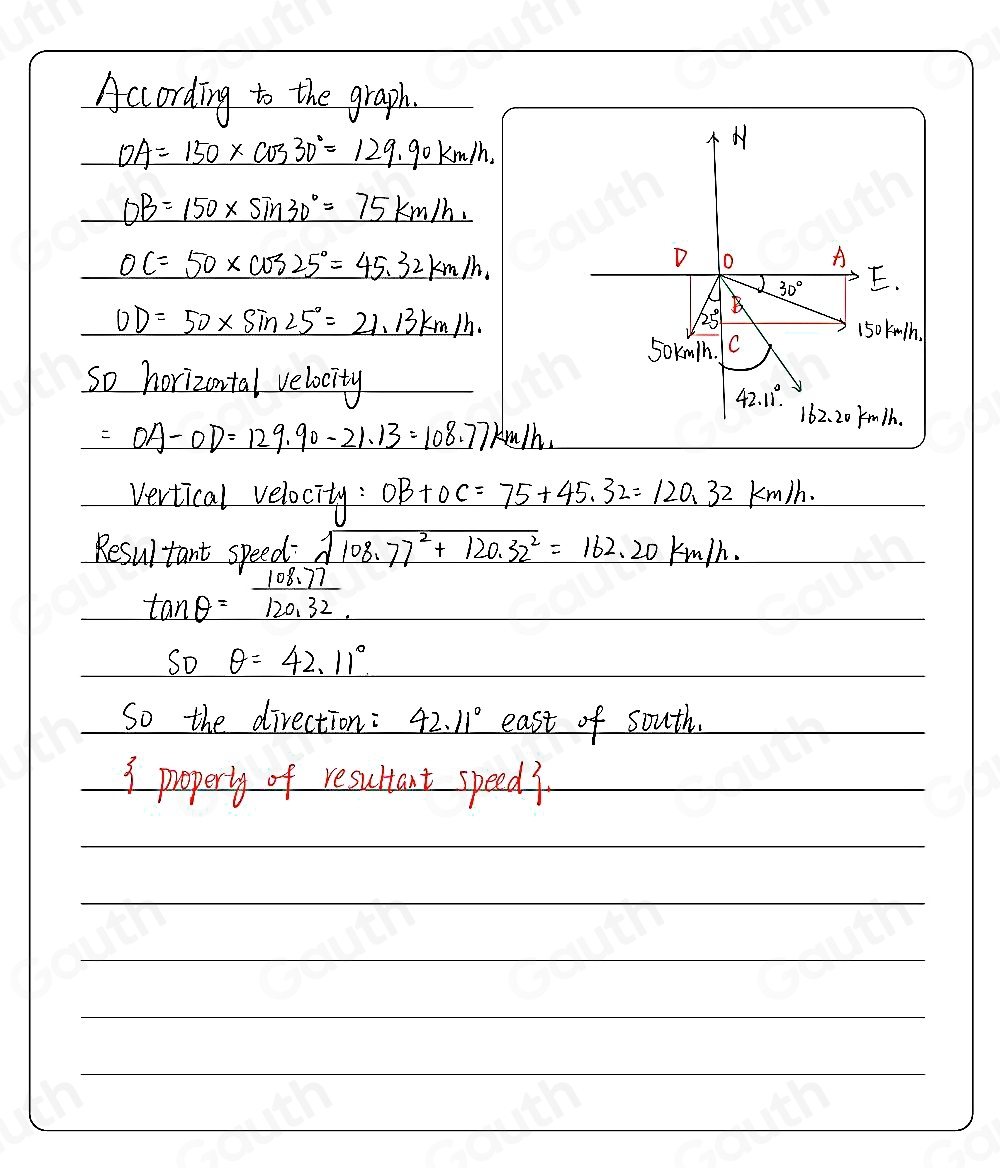 According to the graph.
OA = 150 × cos 30° = 129.90 km/h.
OB = 150 × sin 30° = 75 km/h.
OC = 50 × cos 25° = 45.32 km/h.
OD = 50 × sin 25° = 21.13 km/h.
So horizontal velocity
= OA - OD = 129.90 - 21.13 = 108.77 km/h.
Vertical velocity: OB + OC = 75 + 45.32 = 120.32 km/h.
Resultant speed: √108.77² + 120.32² = 162.20 km/h.
tanθ = 108.77 / 120.32.
So θ = 42.11°.
So the direction: 42.11° east of south.
{ property of resultant speed }.
N
D O A
E.
30°
25°
B
150 km/h.
50 km/h.
C
42.11°.
162.20 km/h.
Gauth